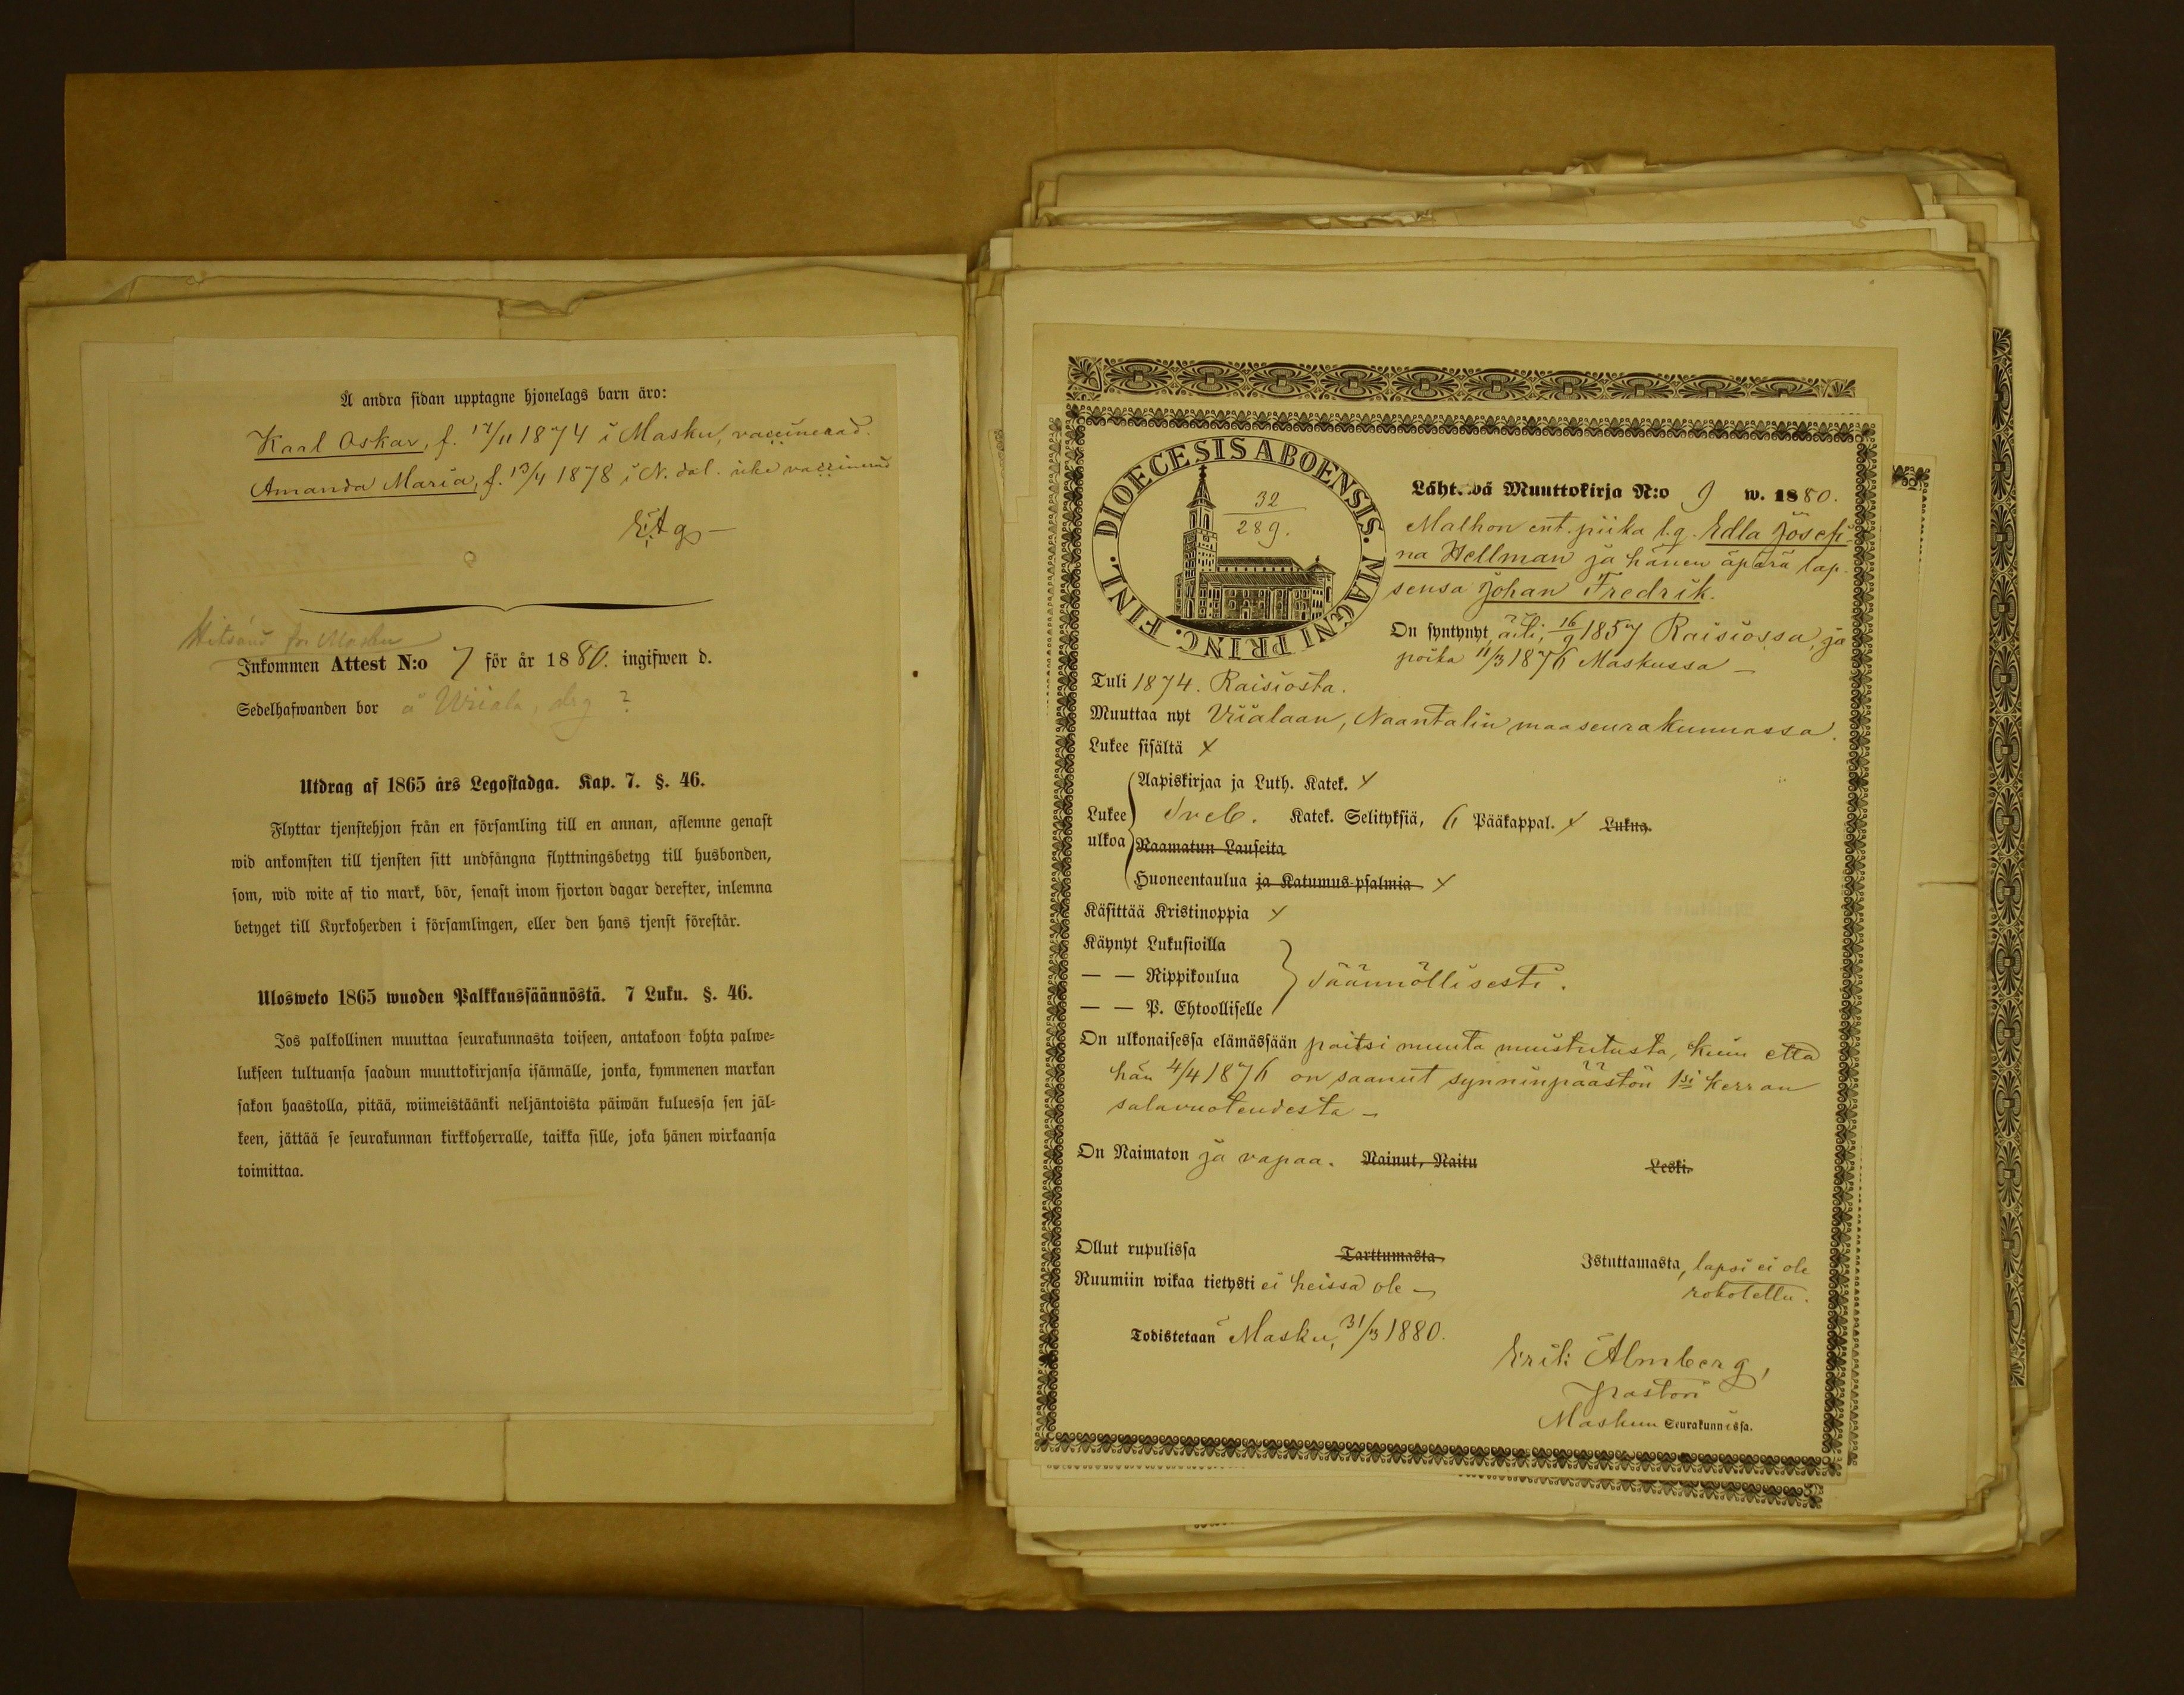 Å andra sidan upptagne hjonelags barn äro:
Karl Oskar, f. 17/11 1874 i Masku, vaccinerad.
Amanda Maria, f. 13/4 1878 i N. dal. icke vaccinerad
Hitsänd fr. Masku
Inkommen Attest N:o 7 för år 1880. ingifwen d.
Sedelhafwanden bor å Wiiala, ?
Utdrag af 1865 års Legostadga. Kap. 7. §. 46.
Flyttar tjenstehjon från en församling till en annan, aflemne genast
wid ankomsten till tjensten sitt undfångna flyttningsbetyg till husbonden,
som, wid wite af tio mark, bör, senast inom fjorton dagar derefter, inlemna
betyget till Kyrkoherden i församlingen, eller den hans tjenst förestår.
Ulosweto 1865 wuoden Palkkaussäännöstä. 7 Luku. §. 46.
Jos palkollinen muuttaa seurakunnasta toiseen, antakoon kohta palwe=
lukseen tultuansa saadun muuttokirjansa isännälle, jonka, kymmenen markan
sakon haastolla, pitää, wiimeistäänki neljäntoista päiwän kuluessa sen jäl=
keen, jättää se seurakunnan kirkkoherralle, taikka sille, joka hänen wirkaansa
toimittaa.
DIOECESIS ABOENSIS. MAGNI PRINC. FINL.
32
289.
Läht.wä Muuttokirja N:o 9 w. 1880.
Malhon ent. piika l.q. Edla Josefi-
na Hellman ja hänen äpärä lap-
sensa Johan Fredrik.
On syntynyt äiti, 16/9 1857 Raisiossa, ja
poika 11/3 1876 Maskussa –
Tuli 1874. Raisiosta.
Muuttaa nyt Viialaan, Naantalin maaseurakunnassa.
Lukee sisältä x
Aapiskirjaa ja Luth. Katek. x
Lukee Sveb. Katek. Selityksiä, 6 Pääkappal. x Lukua.
ulkoa Raamatun Lauseita
Huoneentaulua ja Katumus-psalmia x
Käsittää Kristinoppia x
Käynyt Lukusioilla
— — Rippikoulua Säännöllisesti.
— — P. Ehtoolliselle
On ulkonaisessa elämässään paitsi muuta muistutusta, kuin että
hän 4/4 1876 on saanut synninpäästön 1si kerran
salavuoteudesta –
On Naimaton ja vapaa. Nainut, Naitu Leski.
Ollut rupulissa Tarttumasta, Istuttamasta, lapsi ei ole
rokotettu.
Ruumiin wikaa tietysti ei heissä ole –
Todistetaan Masku, 31/3 1880.
Erik Almberg,
Pastori
Maskun Seurakunnassa.